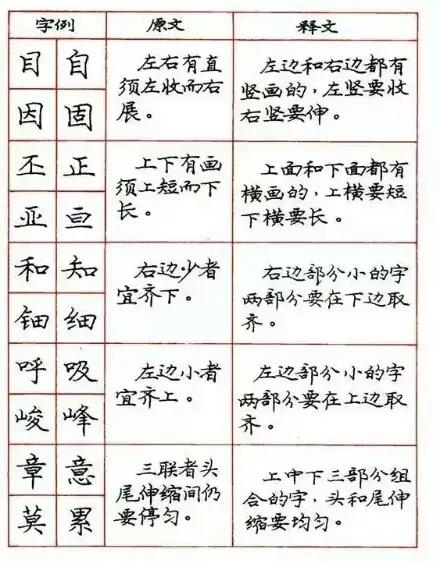 字例 原文 释文
目 自
因 固
左右有直
须左收而右
展。
左边和右边都有
竖画的，左竖要收
右竖要伸。
丕 正
亚 亘
上下有画
须上短而下
长。
上面和下面都有
横画的，上横要短
下横要长。
和 知
钿 细
右边少者
宜齐下。
右边部分小的字
两部分要在下边取
齐。
呼 吸
峻 峰
左边小者
宜齐上。
左边部分小的字
两部分要在上边取
齐。
章 意
莫 累
三联者头
尾伸缩间仍
要停匀。
上中下三部分组
合的字，头和尾伸
缩要均匀。